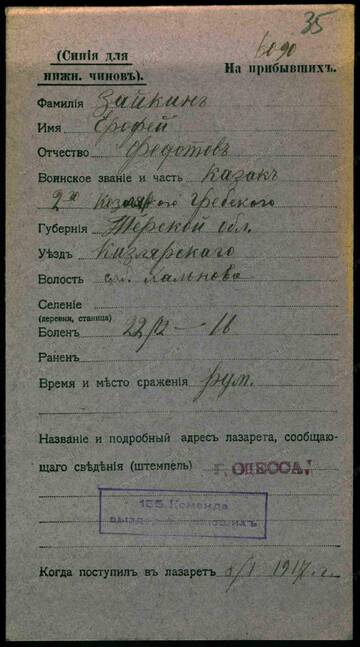 35
6090
(Синія для
нижн. чиновъ).
На прибывшихъ.
Фамилія Зайкинъ
Имя Ерофей
Отчество Федотовъ
Воинское званіе и часть казак
2го Гребенского
Губернія Терской обл.
Уѣздъ Кизлярскаго
Волость
Селеніе
(деревня, станица)
Боленъ 22/12 — 16
Раненъ
Время и мѣсто сраженія рум.
Названіе и подробный адресъ лазарета, сообщаю-
щаго свѣдѣнія (штемпель) г. ОДЕССА.
155 Команда
Когда поступилъ въ лазаретъ 5/I 1917 г.